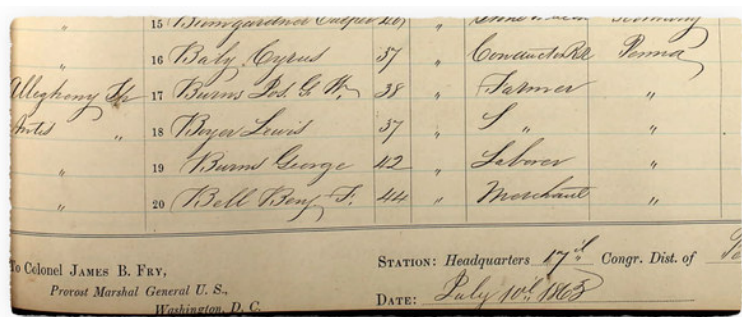 " 15 Bumgardner Casper "
" 16 Baly Cyrus 37 " Conductor RR Penna
Allegheny Tp 17 Burns Jos. G. W. 38 " Farmer "
Antis " 18 Boyer Lewis 37 " " "
" 19 Burns George 42 " Laborer "
" 20 Bell Benj. F. 44 " Merchant "
To Colonel JAMES B. FRY,
Provost Marshal General U. S.,
Washington, D. C.
STATION: Headquarters 17th Congr. Dist. of
DATE: July 10th 1863